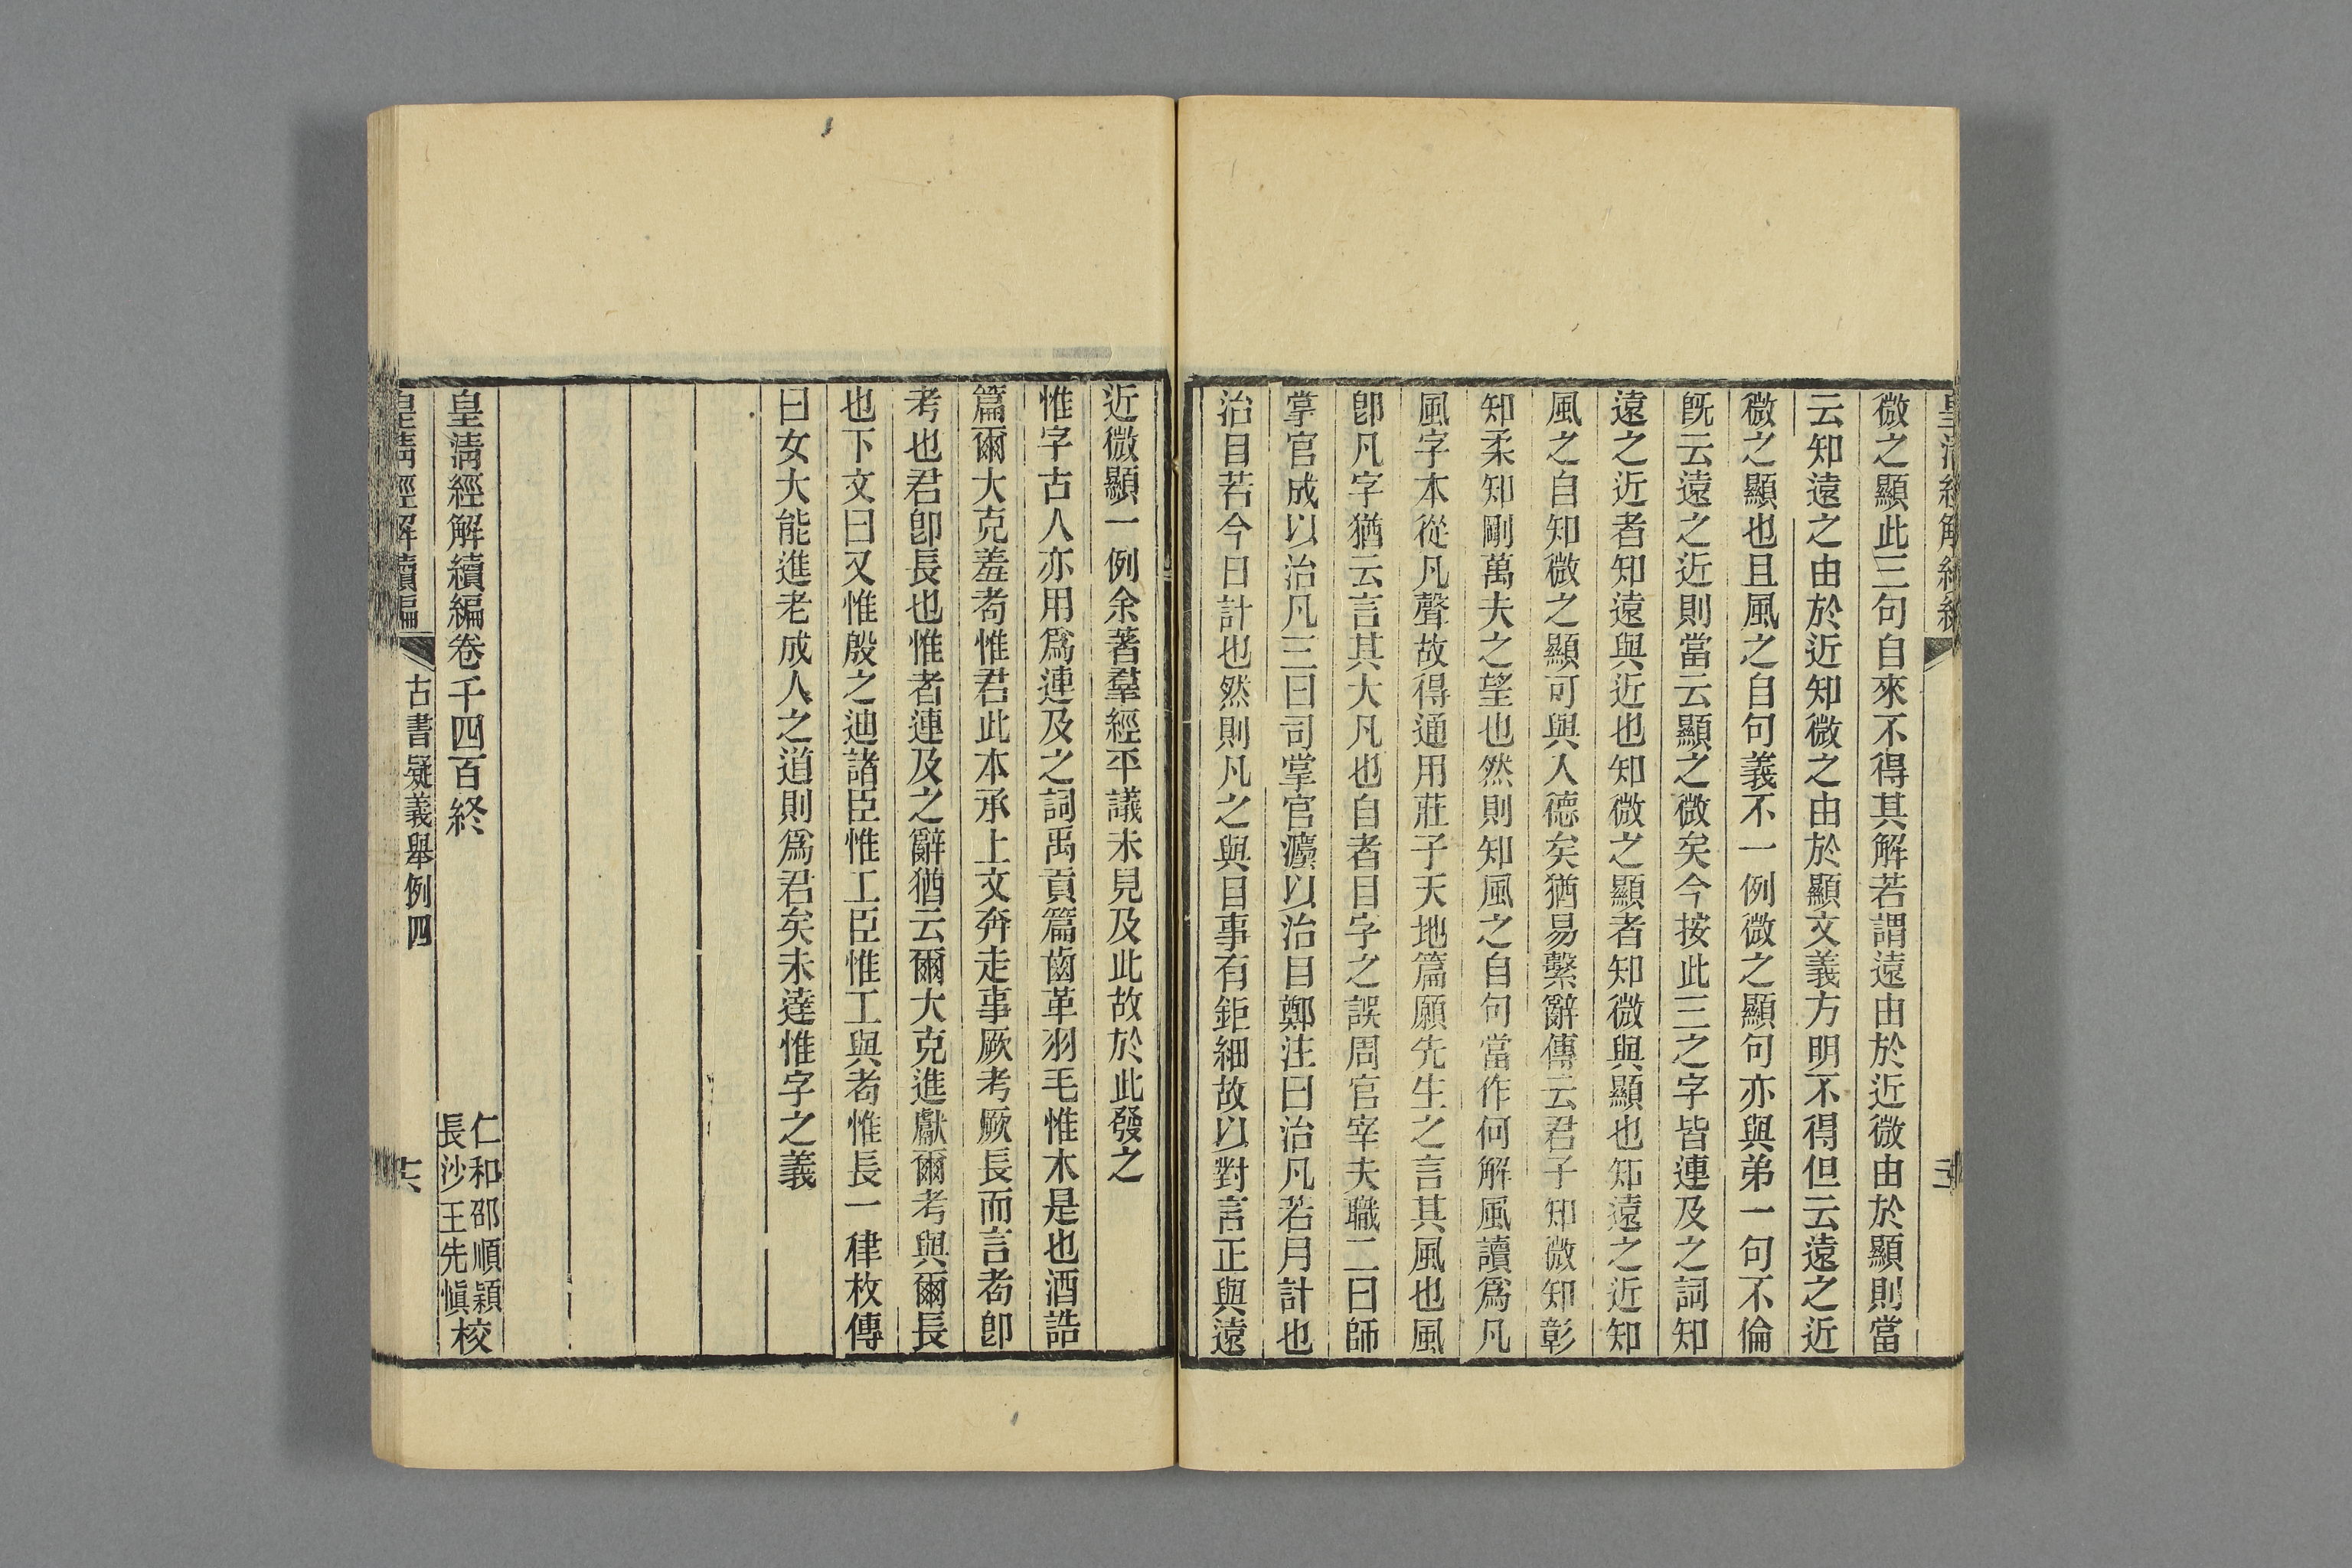 微之顯此三句自來不得其解若謂遠由於近微由於顯則當
云知遠之由於近知微之由於顯文義方明不得但云遠之近
微之顯也且風之自句義不一例微之顯句亦與弟一句不倫
旣云遠之近則當云顯之微矣今按此三之字皆連及之詞知
遠之近者知遠與近也知微之顯者知微與顯也知遠之近知
風之自知微之顯可與入德矣猶易繫辭傳云君子知微知彰
知柔知剛萬夫之望也然則知風之自句當作何解風讀爲凡
風字本從凡聲故得通用莊子天地篇願先生之言其風也風
卽凡字猶云言其大凡也自者目字之誤周官宰夫職二曰師
掌官成以治凡三曰司掌官灋以治目鄭注曰治凡若月計也
治目若今日計也然則凡之與目事有鉅細故以對言正與遠
近微顯一例余著羣經平議未見及此故於此發之
惟字古人亦用爲連及之詞禹貢篇齒革羽毛惟木是也酒誥
篇爾大克羞耇惟君此本承上文奔走事厥考厥長而言耇卽
考也君卽長也惟者連及之辭猶云爾大克進獻爾考與爾長
也下文曰又惟殷之迪諸臣惟工臣惟工與耇惟長一律枚傳
曰女大能進老成人之道則爲君矣未達惟字之義
皇淸經解續編卷千四百終
仁和邵順穎
長沙王先愼校
皇淸經解續編
古書疑義舉例四